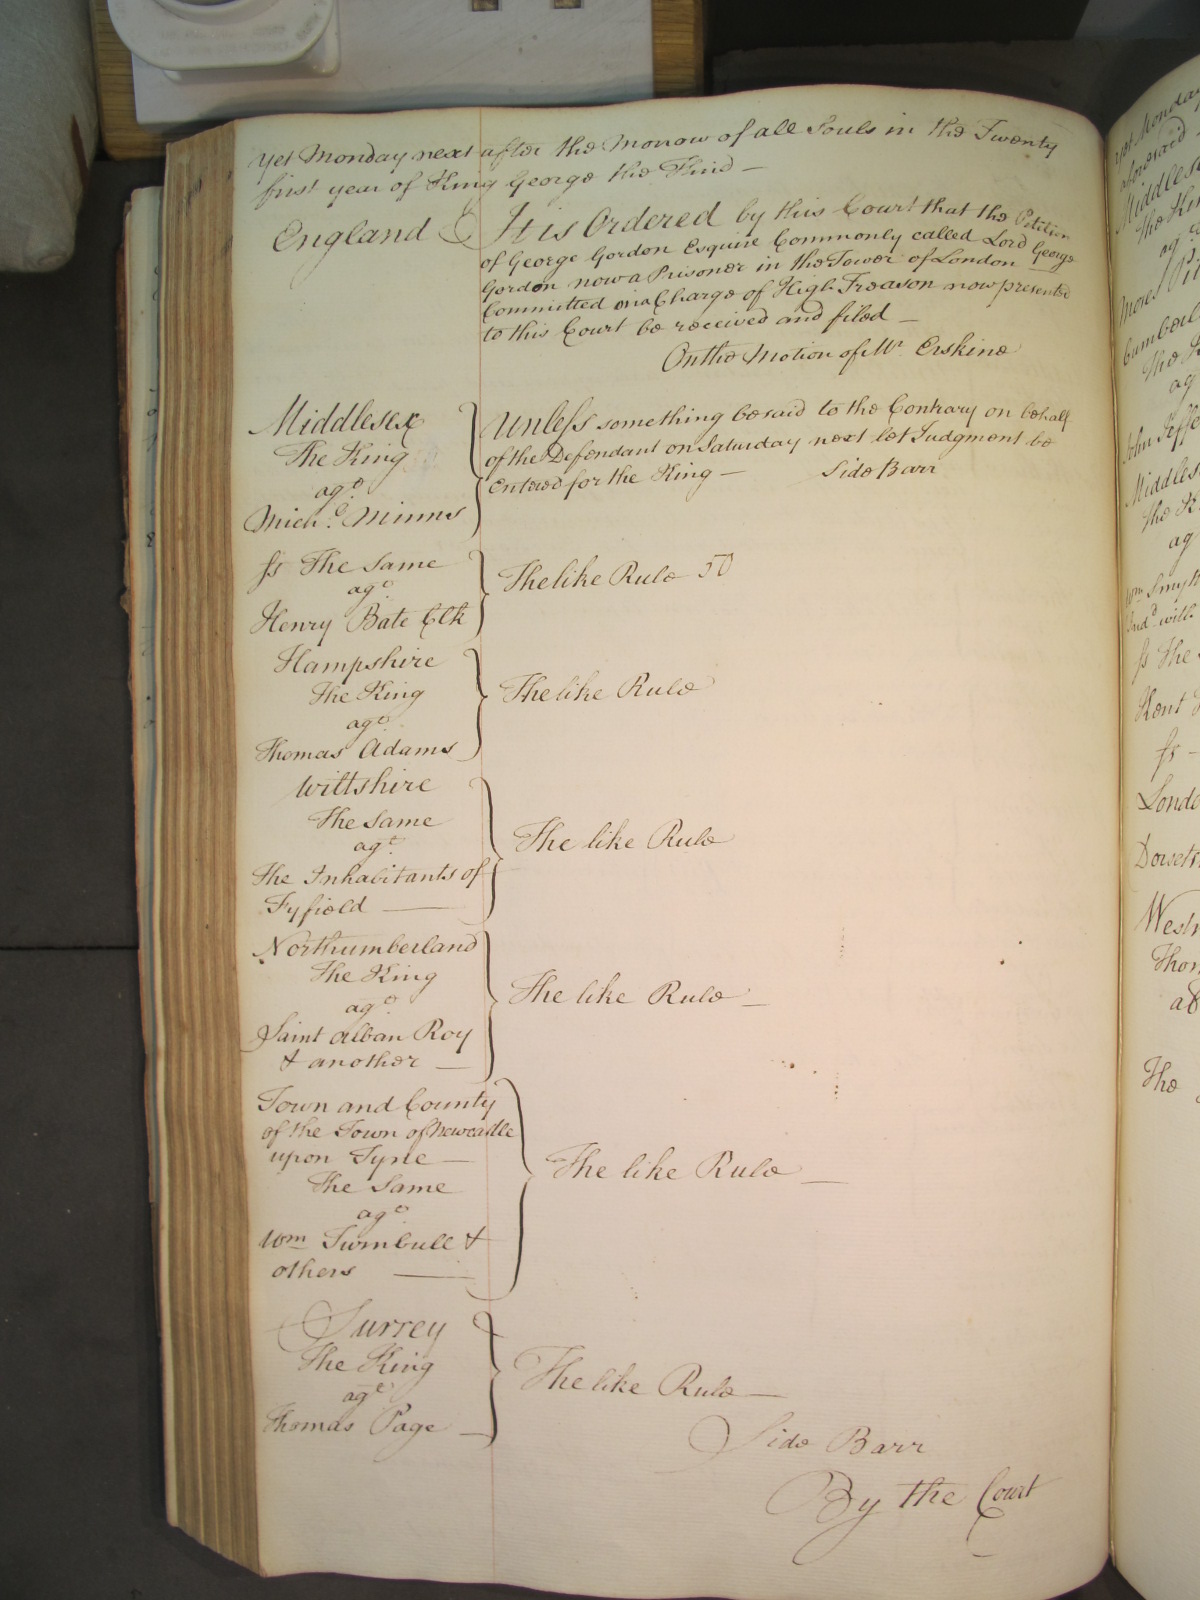 Yet Monday next after the Morrow of all Souls in the Twenty
first year of King George the Third —
England
It is Ordered by this Court that the Petition
of George Gordon Esquire Commonly called Lord George
Gordon now a Prisoner in the Tower of London
Committed on a Charge of High Treason now presented
to this Court be received and filed —
On the Motion of Mr. Erskine
Middlesex
The King
agt.
Michl. Minns
Unless something be said to the Contrary on behalf
of the Defendant on Saturday next let Judgment be
Entered for the King — Side Barr
ss The Same
agt.
Henry Bate Clk
The like Rule
Hampshire
The King
agt.
Thomas Adams
The like Rule
Wiltshire
The Same
agt.
The Inhabitants of
Fyfield —
The like Rule
Northumberland
The King
agt.
Saint Alban Roy
& another —
The like Rule —
Town and County
of the Town of Newcastle
upon Tyne —
The Same
agt.
Wm Turnbull &
others —
The like Rule —
Surrey
The King
agt.
Thomas Page —
The like Rule —
Side Barr
By the Court